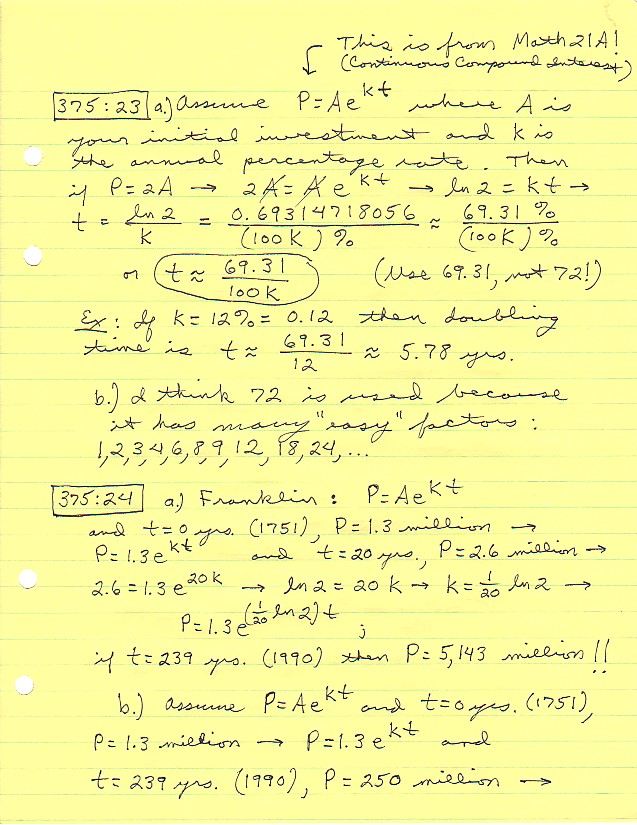 This is from Math 21A!
(Continuous Compound Interest)
375:23 a.) Assume P = Ae^{kt} where A is
your initial investment and k is
the annual percentage rate. Then
if P=2A → 2A = A e^{kt} → ln 2 = kt →
t = ln 2 / k = 0.69314718056 / (100k)% ≈ 69.31 % / (100k)%
or t ≈ 69.31 / 100k (Use 69.31, not 72!)
Ex: If k = 12% = 0.12 then doubling
time is t ≈ 69.31 / 12 ≈ 5.78 yrs.
b.) I think 72 is used because
it has many "easy" factors:
1,2,3,4,6,8,9,12,18,24,...
375:24 a.) Franklin: P=Ae^{kt}
and t=0 yrs. (1751), P=1.3 million →
P=1.3e^{kt} and t=20 yrs., P=2.6 million →
2.6=1.3e^{20k} → ln 2 = 20k → k = 1/20 ln 2 →
P=1.3e^{(1/20 ln 2)t} ;
if t=239 yrs. (1990) then P=5,143 million!!
b.) Assume P=Ae^{kt} and t=0 yrs. (1751),
P=1.3 million → P=1.3e^{kt} and
t=239 yrs. (1990), P=250 million →